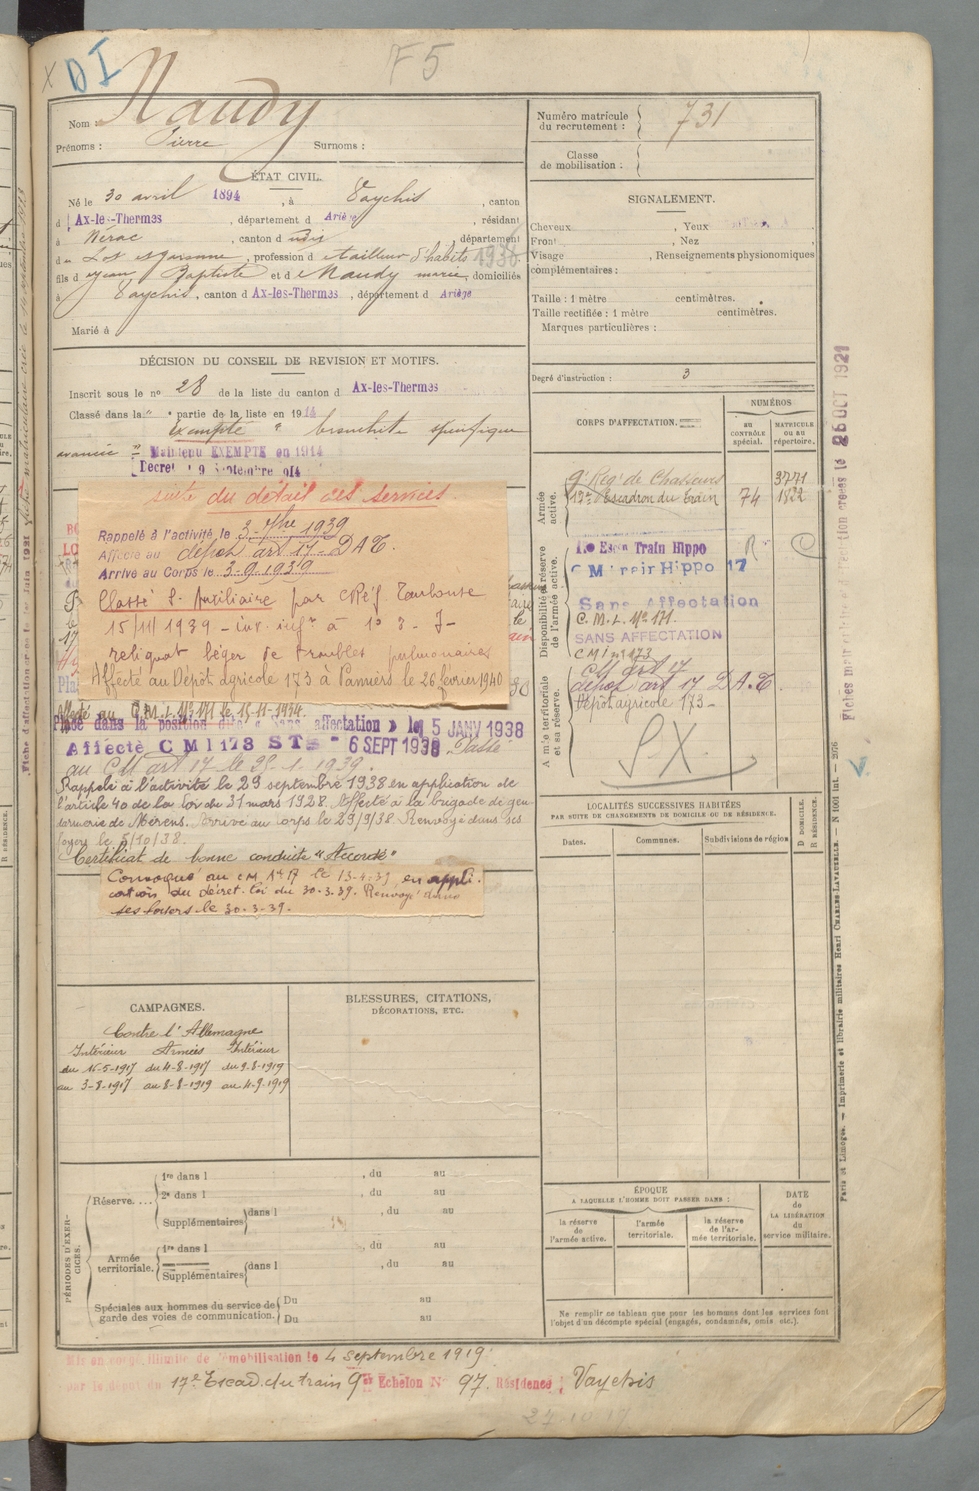 D I
F 5
Nom : Naudy
Prénoms : Pierre Surnoms :
Numéro matricule du recrutement : 731
Classe de mobilisation :
ÉTAT CIVIL.
Né le 30 avril 1894, à Vaychis, canton
d Ax-les-Thermes, département d Ariège, résidant
à Nérac, canton d udit, département
du Lot et Garonne, profession d tailleur d'habits
fils d Jean Baptiste et d Naudy marie, domiciliés
à Vaychis, canton d Ax-les-Thermes, département d Ariège
Marié à
SIGNALEMENT.
Cheveux , Yeux
Front , Nez
Visage , Renseignements physionomiques
complémentaires :
Taille : 1 mètre centimètres.
Taille rectifiée : 1 mètre centimètres.
Marques particulières :
Degré d'instruction : 3
DÉCISION DU CONSEIL DE REVISION ET MOTIFS.
Inscrit sous le nº 28 de la liste du canton d Ax-les-Thermes
Classé dans la " partie de la liste en 1914
Exempté bronchite spécifique
avancée
Maintenu EXEMPTÉ en 1914
Décret 9 Septembre 914
suite du détail des services.
Rappelé à l'activité le 3 7bre 1939
Affecté au dépôt art 17 D A T.
Arrivé au Corps le 3-9-1939
Classé S. Auxiliaire par CRéf Toulouse
15/11/1939
reliquat léger de troubles pulmonaires
Affecté au Dépôt agricole 173 à Pamiers le 26 février 1940
Affecté au C.M.I. Nº 171 le 15-11-1934.
Placé dans la position dite « Sans affectation » le 15 JANV 1938
Affecté C M I 173 6 SEPT 1938 Passé
au CM art 17 le 28-1-1939.
Rappelé à l'activité le 29 septembre 1938 en application de
l'article 40 de la loi du 31 mars 1928. Affecté à la brigade de gen-
darmerie de Mérens. Arrivé au corps le 29/9/38. Renvoyé dans ses
foyers le 5/10/38.
Certificat de bonne conduite "Accordé"
Convoqué au CM. Art 17 le 13-4-39 en appli-
cation du décret-loi du 30-3-39. Renvoyé dans
ses foyers le 30-3-39.
CORPS D'AFFECTATION.
NUMÉROS
AU CONTRÔLE spécial.
MATRICULE OU AU répertoire.
Armée active.
9e Rég' de Chasseurs 3771
17e Escadron du Train 74 1822
Disponibilité et réserve de l'armée active.
Escon Train Hippo
C M Train Hippo 17
Sans Affectation
C.M.I. Nº 171.
SANS AFFECTATION
CMI nº 173
Armée territoriale et sa réserve.
CM art 17
dépôt art 17 D.A.T.
Dépôt agricole 173
SX
LOCALITÉS SUCCESSIVES HABITÉES
PAR SUITE DE CHANGEMENTS DE DOMICILE OU DE RÉSIDENCE.
Dates. Communes. Subdivisions de région
D DOMICILE.
R RÉSIDENCE.
CAMPAGNES.
Contre l'Allemagne
Intérieur Armées Intérieur
du 16-5-1917 du 4-8-1917 du 9-8-1919
au 3-8-1917 au 8-8-1919 au 4-9-1919
BLESSURES, CITATIONS,
DÉCORATIONS, ETC.
PÉRIODES D'EXERCICES.
Réserve....
1re dans l , du au
2e dans l , du au
Supplémentaires dans l , du au
Armée territoriale.
1re dans l , du au
Supplémentaires dans l , du au
Spéciales aux hommes du service de garde des voies de communication.
Du au
Du au
ÉPOQUE
A LAQUELLE L'HOMME DOIT PASSER DANS :
la réserve de l'armée active.
l'armée territoriale.
la réserve de l'armée territoriale.
DATE de LA LIBÉRATION du service militaire.
Ne remplir ce tableau que pour les hommes dont les services font
l'objet d'un décompte spécial (engagés, condamnés, omis etc.).
Mis en congé illimité de démobilisation le 4 septembre 1919
par le dépôt du 17e Escad. du train 9er Echelon N° 97. Résidence : Vaychis
26 OCT 1921
Paris et Limoges. — Imprimerie et librairie militaires Henri CHARLES-LAVAUZELLE. — N 1001 Int. — 2976